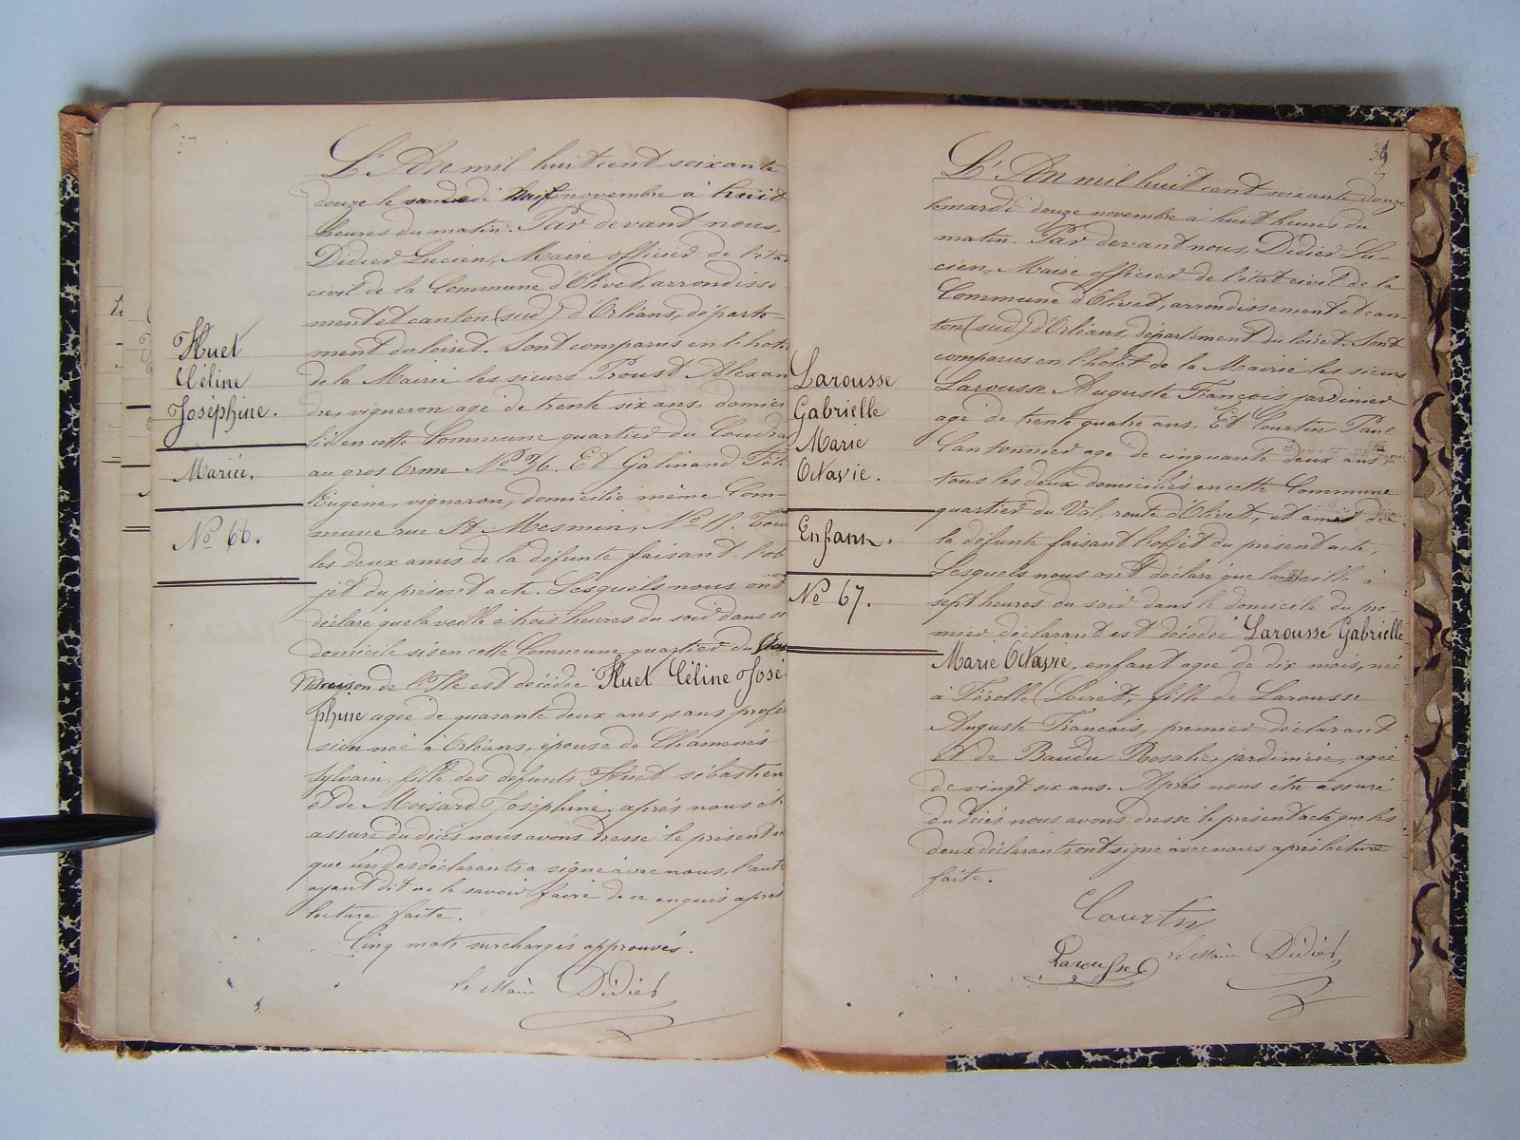 Huet
Céline
Joséphine.
Mariée.
No 66.
L'An mil huit cent soixante
douze le samedi neuf novembre à huit
heures du matin. Par devant nous,
Didier Lucien, Maire officier de l'état
civil de la Commune d'Olivet, arrondisse-
ment et canton (sud) d'Orléans, départe-
ment du loiret. Sont comparus en l'hotel
de la Mairie les sieurs Proust Alexan
dre, vigneron agé de trente six ans, domici
lié en cette Commune quartier du Coudray
au gros Orme No 76. Et Galinand
Eugène, vigneron, domicilié même Com-
mune rue St Mesmin, No 11. Tous
les deux amis de la défunte faisant l'ob
jet du présent acte. Lesquels nous ont
déclaré que la veille à trois heures du soir dans
domicile sis en cette Commune, quartier du
de l'Ile est décédée Huet Céline José
phine agée de quarante deux ans, sans profes
sion née à Orléans, épouse de
Sylvain, fille des défunts Huet Sébastien
et de Moisard Joséphine, après nous être
assuré du décès nous avons dressé le présent
que l'un des déclarants a signé avec nous, l'autre
ayant dit ne le savoir faire de ce enquis après
lecture faite.
Cinq mots surchargés approuvés.
le Maire Didier
39
Larousse
Gabrielle
Marie
Octavie.
Enfant.
No 67.
L'An mil huit cent soixante douze
le mardi douze novembre à huit heures du
matin. Par devant nous, Didier Lu-
cien, Maire officier de l'état civil de la
Commune d'Olivet, arrondissement et can-
ton (sud) d'Orléans, département du loiret. Sont
comparus en l'hotel de la Mairie les sieurs
Larousse Auguste François jardinier
agé de trente quatre ans. Et Courtin Paul
Cantonnier agé de cinquante deux ans
tous les deux domiciliés en cette Commune
quartier du Val, route d'Olivet, et amis de
la défunte faisant l'objet du présent acte,
Lesquels nous ont déclaré que la veille à
sept heures du soir dans le domicile du pre-
mier déclarant est décédée Larousse Gabrielle
Marie Octavie, enfant agée de dix mois, née
à Férolles (Loiret), fille de Larousse
Auguste François, premier déclarant
et de Baudu Rosalie, jardinière, agée
de vingt six ans. Après nous être assuré
du décès nous avons dressé le présent acte que les
deux déclarants ont signé avec nous après lecture
faite.
Courtin
Larousse le Maire Didier